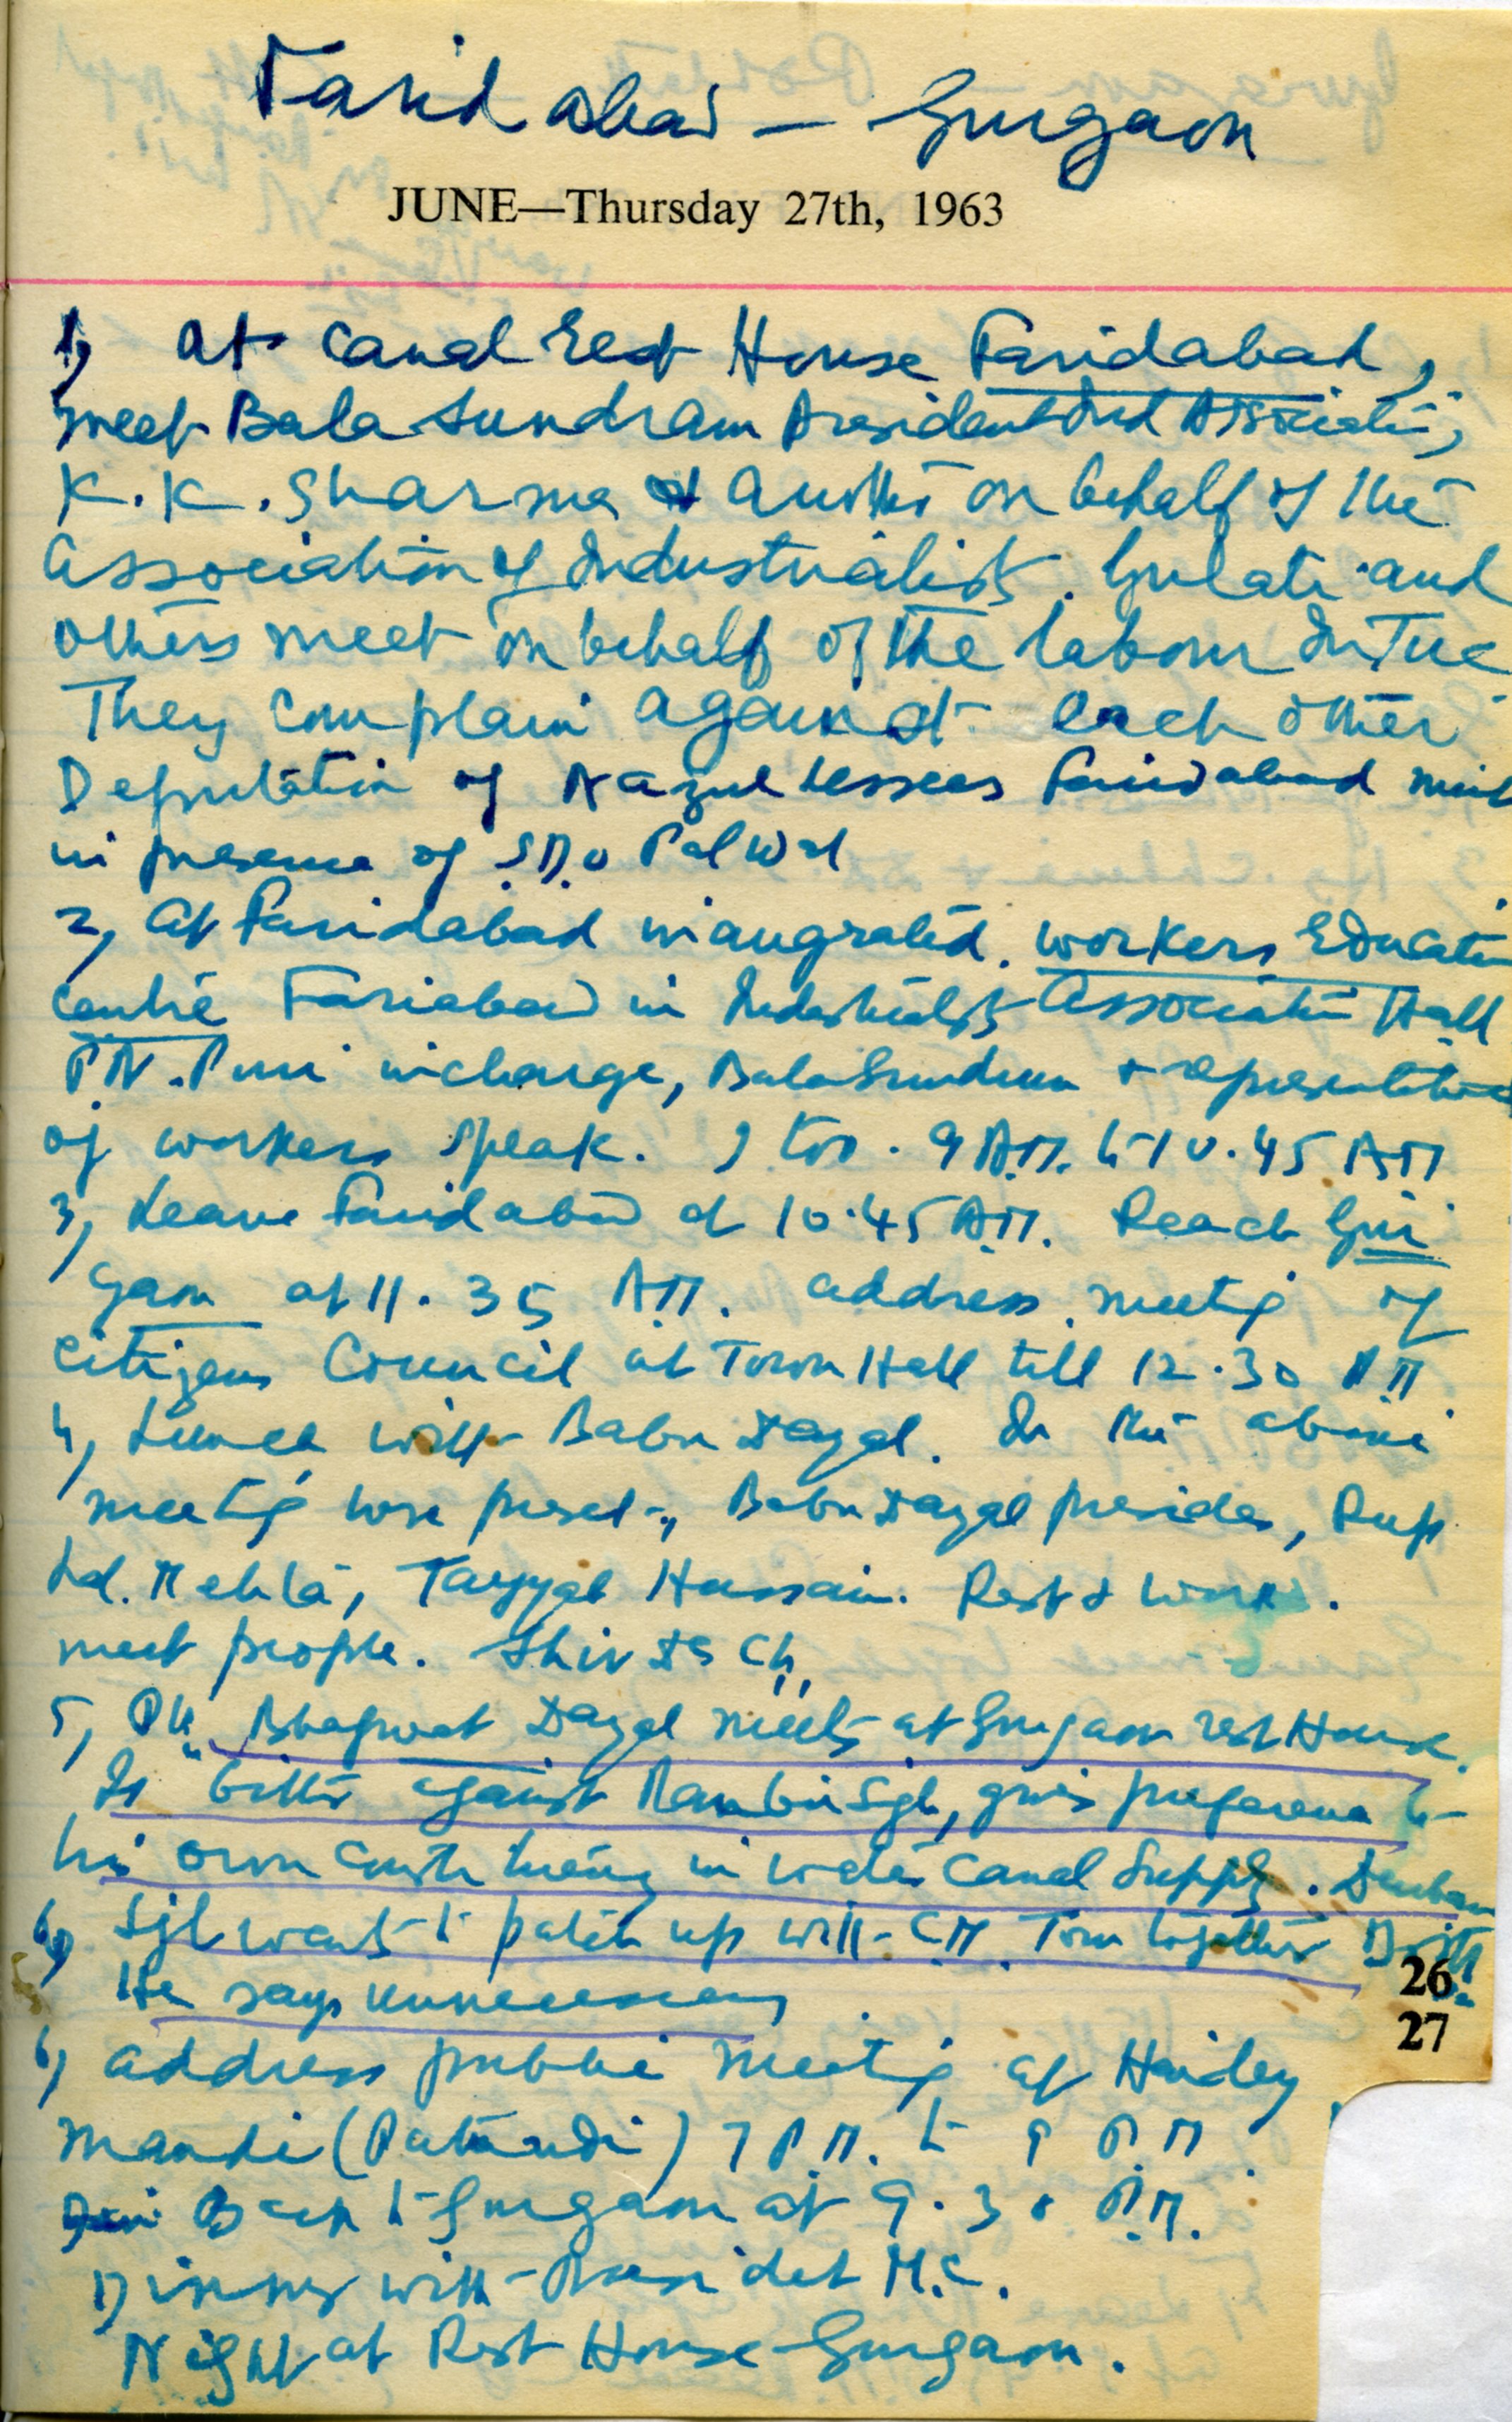 Faridabad — Gurgaon
JUNE—Thursday 27th, 1963
1, At Canal Rest House Faridabad,
meet Bala Sundram President Ind Association,
K. K. Sharma & another on behalf of the
Association of Industrialists. Gulati and
others meet on behalf of the labour INTUC
They complain against each other
Deputation of Nazul Lessees Faridabad meet
in presence of S.D.O Palwal
2, At Faridabad inaugrated. Workers Education
Centre Faridabad in Industrialists Association Hall
P.N. Puri incharge, Bala Sundram & representatives
of workers speak. I too. 9 A.M. to 10.45 A.M
3, Leave Faridabad at 10.45 A.M. Reach Gur
gaon at 11.35 A.M. address meeting of
Citizens Council at Town Hall till 12.30 P.M
4, Lunch with Babu Dayal. In the above
meeting were present, Babu Dayal presides, Rup
Lal. Mehta, Tayyab Hussain. Rest & work.
meet people. Shiv Ch.
5, Bhagwat Dayal meets at Gurgaon rest House.
Is bitter against Ranbir Singh, gives preference to
his own constituency in water canal supply.
6, Sigh wants to patch up with C.M. Tour together
He says unnecessary
26
27
6, address public meeting at Hailey
Mandi (Pataudi) 7 P.M. to 9 P.M.
Back to Gurgaon at 9.30 P.M.
Dinner with President M.C.
Night at Rest House Gurgaon.